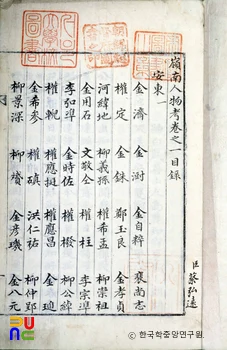 嶺南人物考卷之一目錄
臣蔡弘遠
安東一
金濟 金澍 金自粹 裵尙志
權定 金銖 鄭玉良 金孝貞
河緯地 柳義孫 權希孟 柳崇祖
金用石 文敬仝 權柱 李宗準
李弘準 金時佐 權橃 柳公綽
權輗 權應挺 權應昌 金璡
金希參 權磌 洪仁祐 柳仲郢
柳景深 柳贇 金彦璣 金八元
한국학중앙연구원